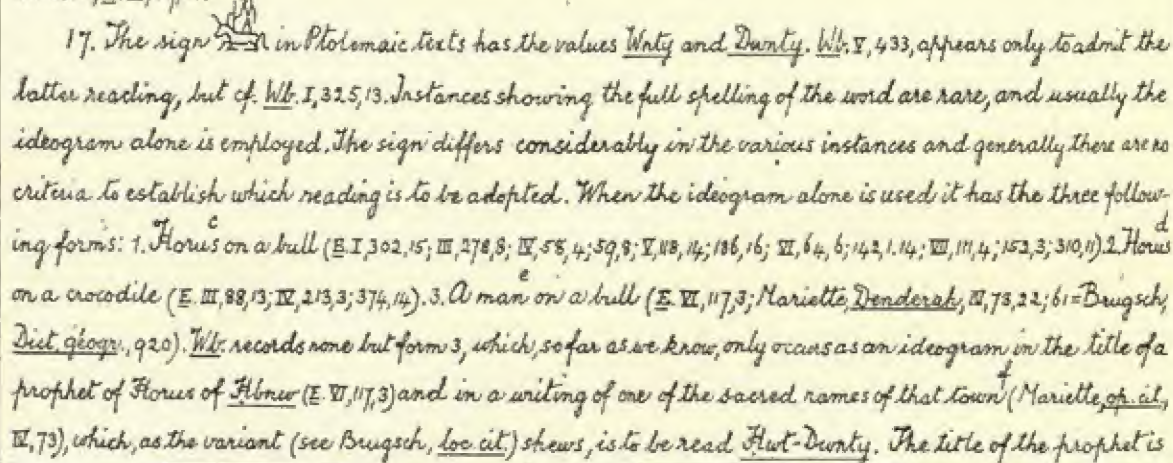 17. The sign in Ptolemaic texts has the values Wnty and Dwnty. Wb. V, 433, appears only to admit the
latter reading, but cf. Wb. I, 325, 13. Instances showing the full spelling of the word are rare, and usually the
ideogram alone is employed. The sign differs considerably in the various instances and generally there are no
criteria to establish which reading is to be adopted. When the ideogram alone is used it has the three follow-
ing forms: 1. Horus c on a bull (E. I, 302, 15; III, 278, 8; IV, 58, 4; 59, 8; V, 118, 14; 186, 16; VI, 64, 6; 142, 1.14; VII, 111, 4; 153, 3; 310, 11). 2. Horus d
on a crocodile (E. III, 88, 13; IV, 213, 3; 374, 14). 3. A man e on a bull (E. VI, 117, 3; Mariette, Denderah, IV, 73, 22; 61 = Brugsch,
Dict. géogr., 920). Wb. records none but form 3, which, so far as we know, only occurs as an ideogram in the title of a
prophet of Horus of Hbnw (E. VI, 117, 3) and in a writing of one of the sacred names of that town f (Mariette, op. cit.,
IV, 73), which, as the variant (see Brugsch, loc. cit.) shews, is to be read Hwt-Dwnty. The title of the prophet is